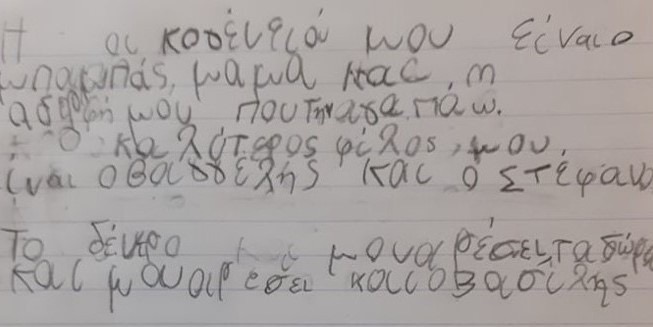 Η οι κογένειά μου είναι ο
μπαμπάς, μαμα και, η
αδερφή μου που την αγαπάω.
Ο καλύτερος φίλος, μου,
ίναι ο Βασσίλης και ο Στέφαν
Το δέντρο μου αρέσει, τα δώρα
και μου αρέσει και ο Βασίλης